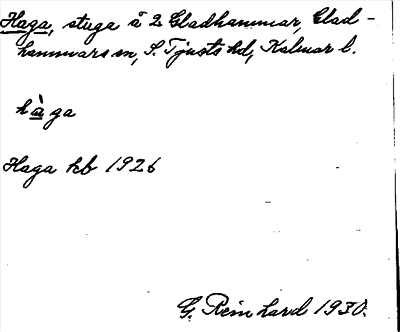 Haga, stuga å 2 Gladhammar, Glad-
hammars sn, S. Tjusts hd, Kalmar l.
hàga
Haga kb 1926
G. Reinhard 1930.